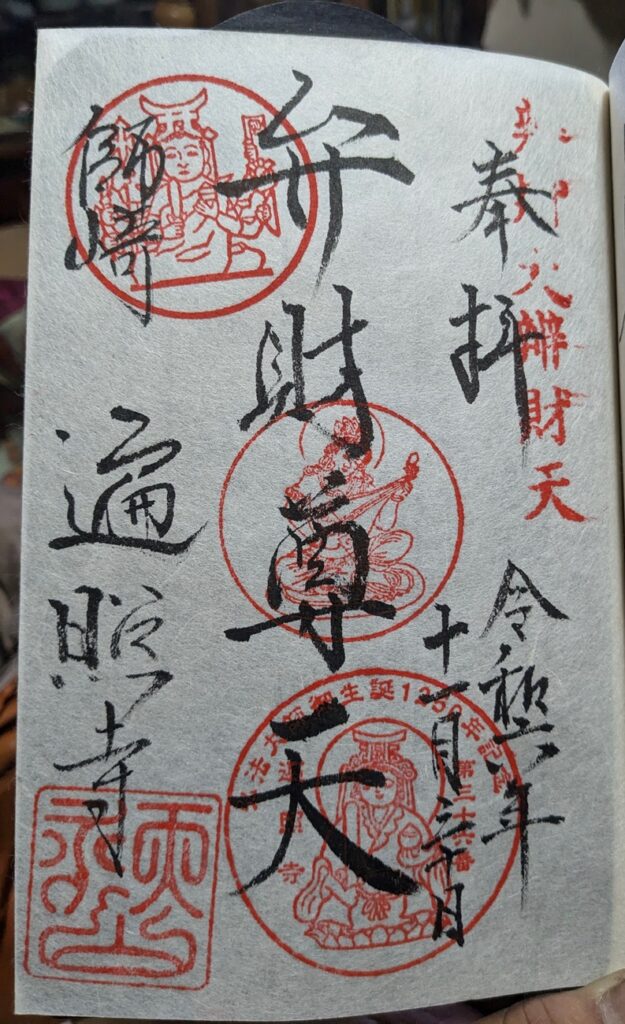 大辨財天
奉拝
令和六年
十一月三十日
弁財尊天
弘法大師御生誕1250年記念
第三十六番
遍照寺
師崎
遍照寺